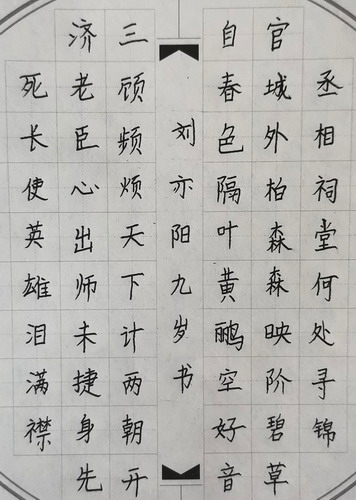 丞相祠堂何处寻锦
官城外柏森森映阶碧草
自春色隔叶黄鹂空好音
刘亦阳九岁书
三顾频烦天下计两朝开
济老臣心出师未捷身先
死长使英雄泪满襟